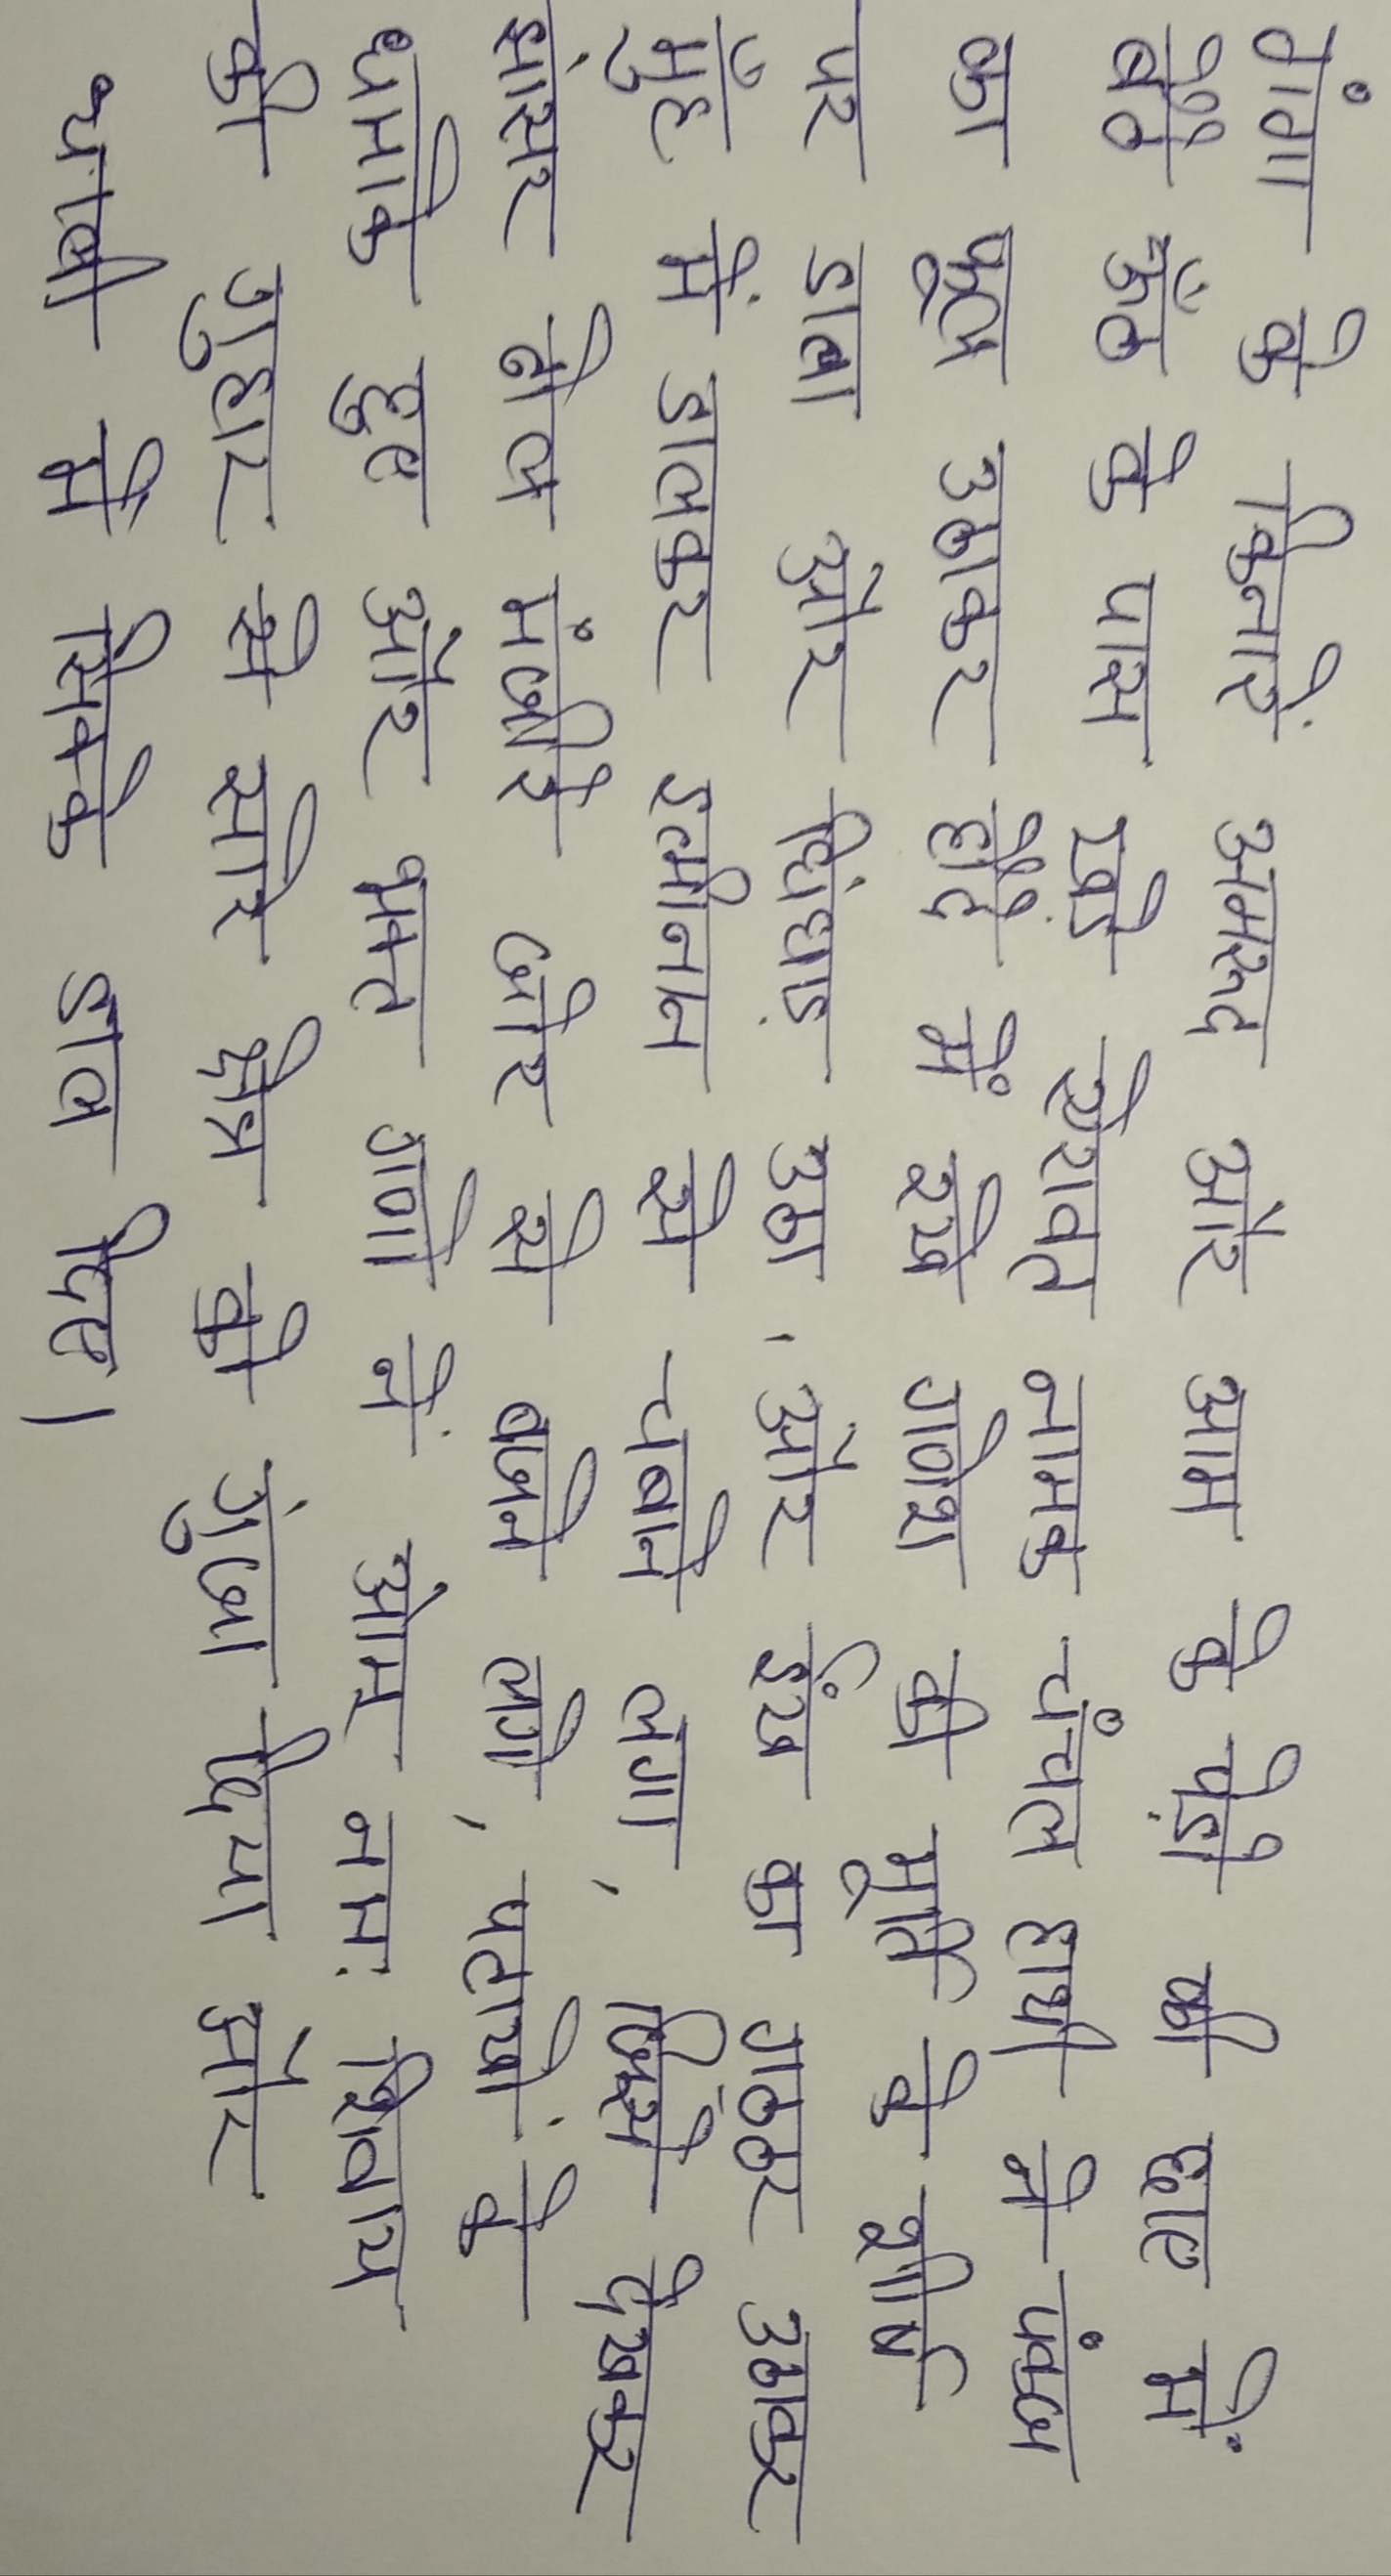 गंगा के किनारें अमरूद और आम के पेड़ो की छाए में
बैठै ऊँठ के पास खड़े ऐरावत नामक चंचल हाथी ने पंकज
का फूल उठाकर हौदै में रखे गणेश की मूर्ति के शीर्ष
पर डाला और घिंघाड़ उठा, और ईंख का गठ्ठर उठाकर
मुँह में डालकर इत्मीनान से चबाने लगा, जिसे देखकर
झांसर ढोल मंजीरे जोर से बजने लगे, पटाखों के
धमाके हुए और भक्त गणो नें ओम् नमः शिवाय
की गुहार से सारे क्षेत्र को गुंजा दिया और
थाली में सिक्के डाल दिए।